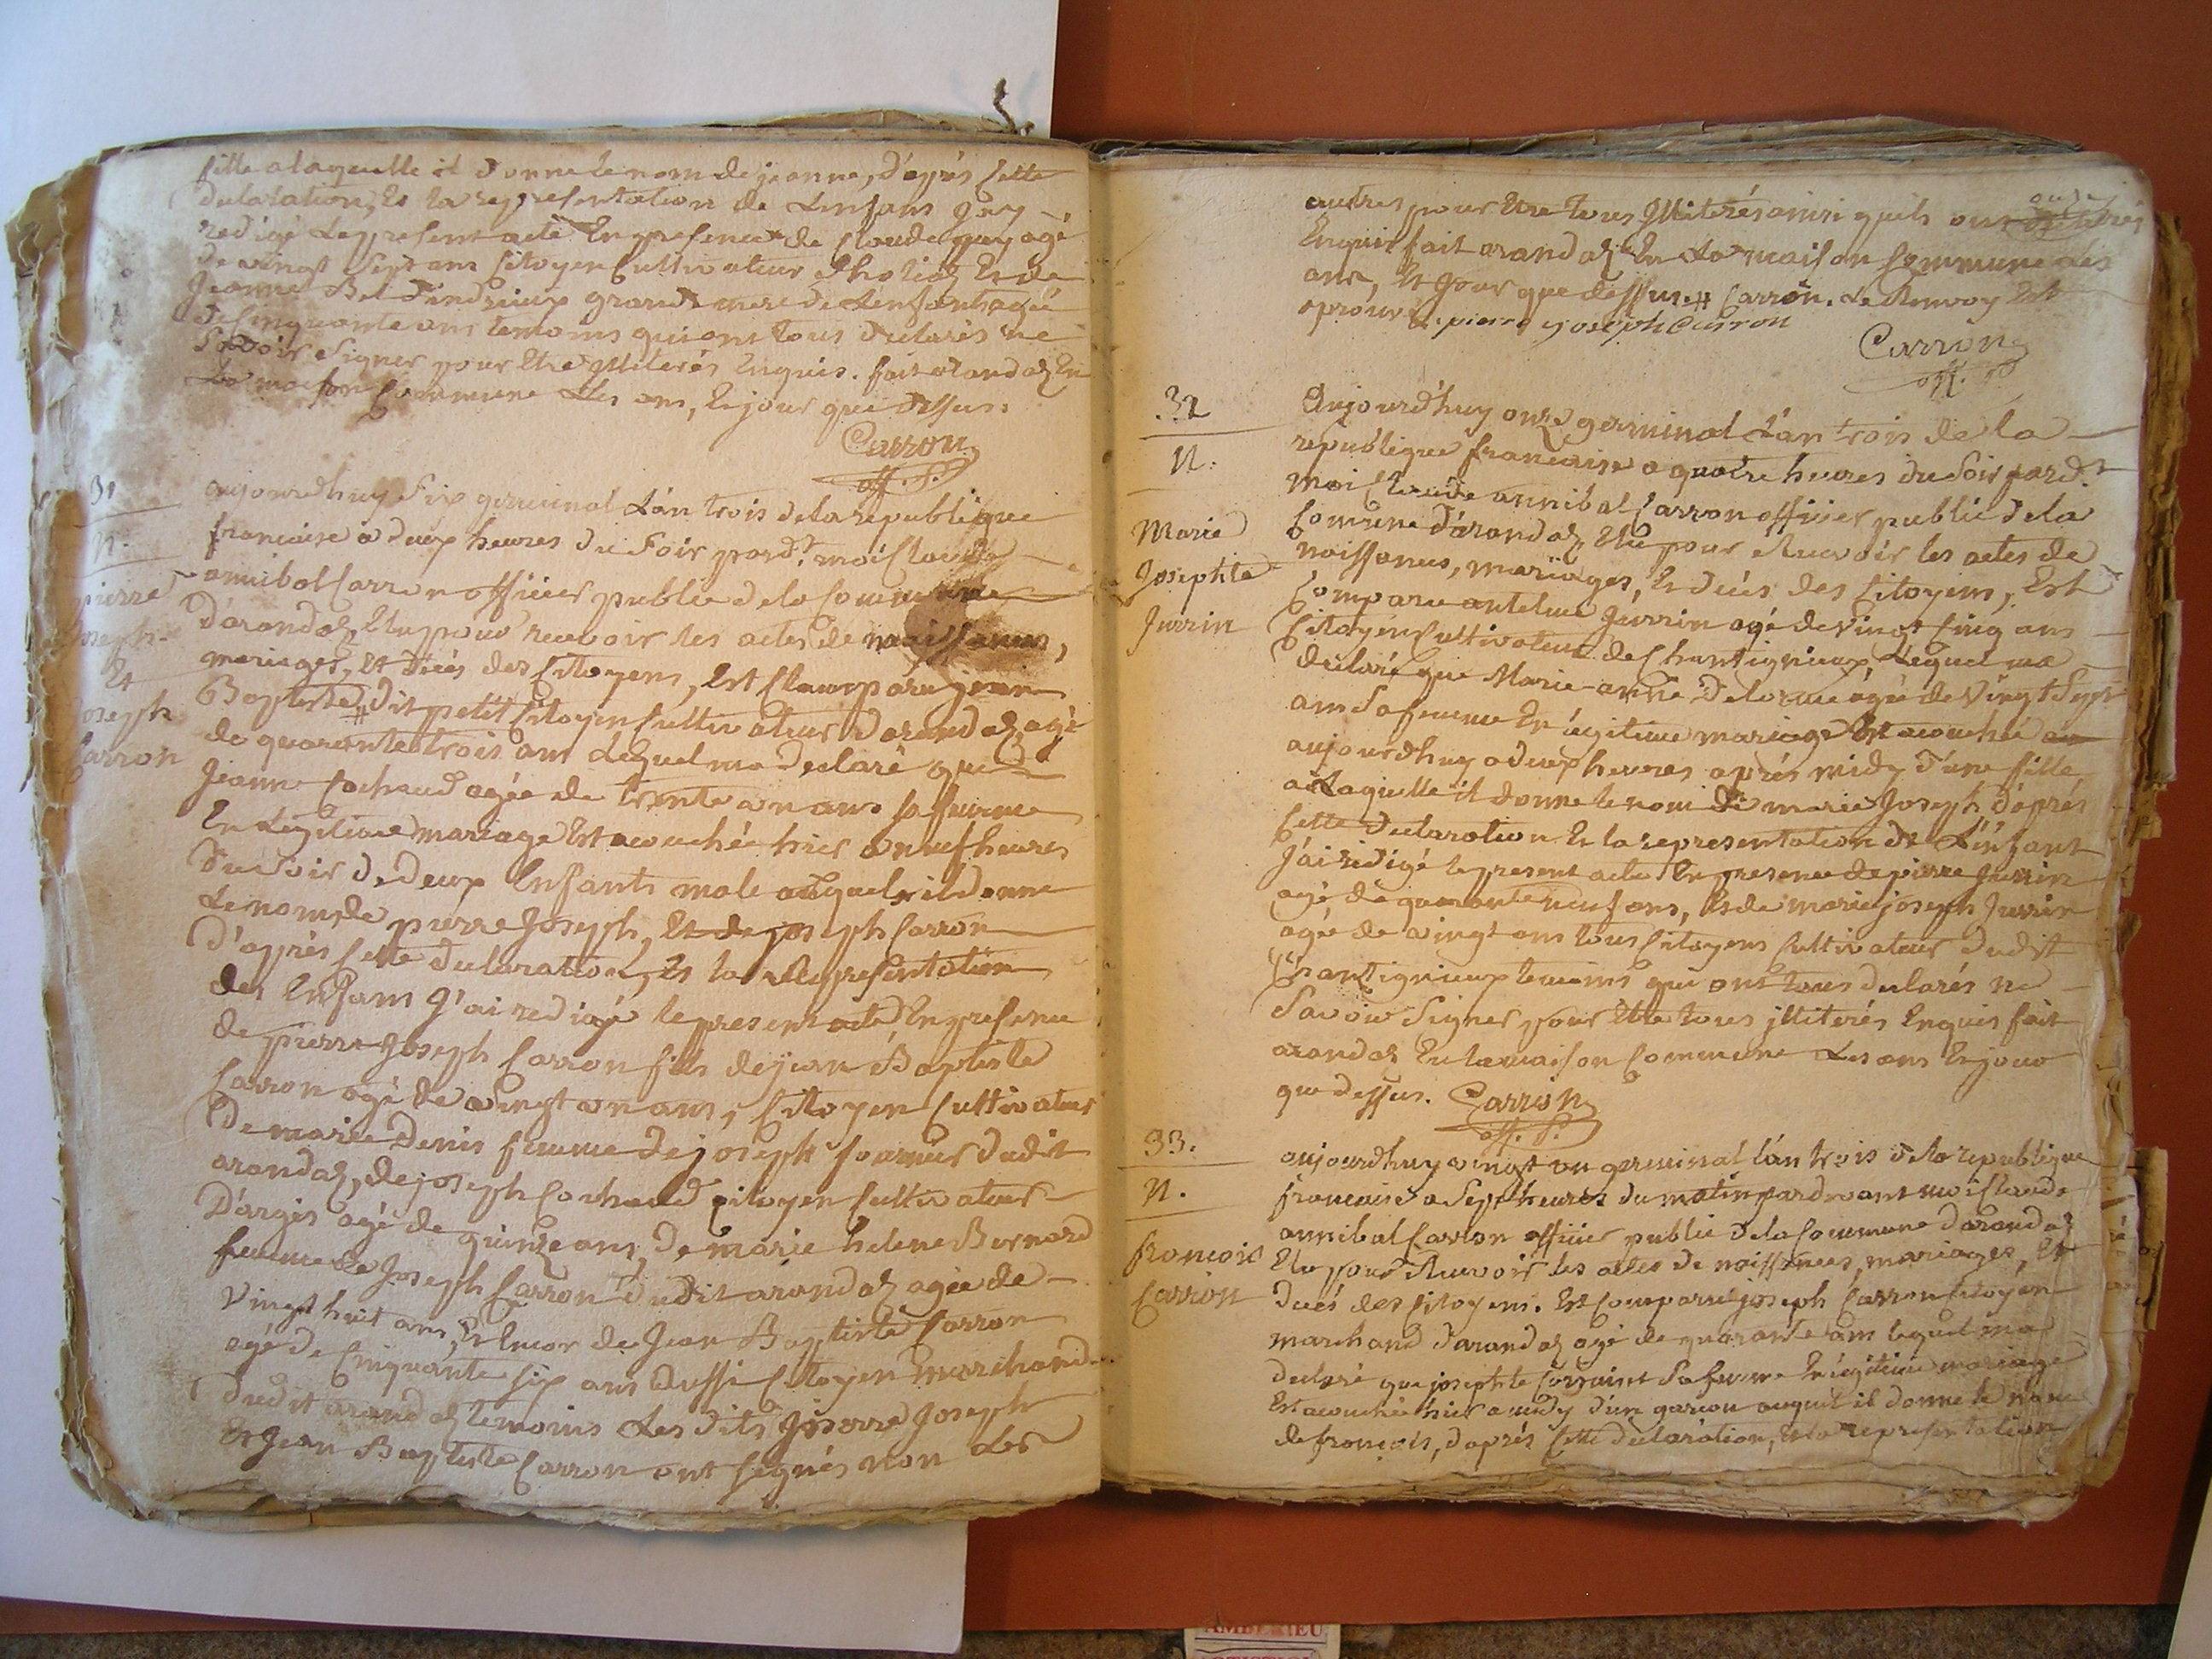 fille a laquelle il donne le nom de jeanne, d'après cette
declaration, Et la representation de Lenfans Jay
redigé Le present acte En presence de Claude guy agé
de vingt Sept ans Citoyen Cultivateur Et de
Jeanne Bel grand mere de Lenfant agée
de Cinquante ans temoins qui ont tous declarés ne
Savoir Signer pour Etre illiterés Enquis. fait arandaz En
La maison Commune Les ans, Et jour que dessus
Carron
off. p.
31
N.
pierre
joseph
Et
joseph
Carron
aujourdhuy Six germinal L'an trois de la republique
francaise a deux heures du Soir pard.t moi Claude
annibal Carron officier public de la Commune
D'arandaz, Elu pour recevoir les actes de naissances,
mariages, Et Decés des Citoyens, Est Comparu jean
Baptiste # dit petit Citoyen Cultivateur d'arandaz, agé
de quarante trois ans Lequel ma Declaré que
Jeanne Cochaud agée de trente un ans Sa femme
En Legitime mariage Est acouchée hier a neuf heures
Du Soir de Deux Enfants male auquels il donne
Le nom, de pierre Joseph, Et de joseph Carron
D'après Cette Declaration, Et la representation
des Enfans J'ai redigé le present acte En presence
de pierre Joseph Carron fils de jean Baptiste
Carron agé de vingt un ans, Citoyen Cultivateur
De marie Denis femme de joseph fournier dudit
arandaz, de joseph Cochaud citoyen Cultivateur
D'argis agé de quinze ans, De marie helene Bernard
femme de Joseph Carron dudit arandaz agée de
Vingt huit ans, Et Encor de Jean Baptiste Carron
agé De Cinquante Six ans aussi Citoyen marchand
Dudit arandaz temoins Les dits pierre Joseph
Et Jean Baptiste Carron ont Signés non Les
autres pour Etre tous Illiterés ainsi quils ont
Enquis fait arandaz En La maison Commune Les
ans, Et Jour que dessus # Carron. Le Renvoy Est
aprouvé pierre joseph Carron
Carron
off. p.
32
N.
Marie
Josephte
Jurrin
Aujourdhuy onze germinal L'an trois de la
republique francaise a quatre heures du Soir pard.t
moi Claude annibal Carron officier public de la
Comune d'arandaz Elu pour Recevoir les actes de
naissances, mariages, Et decés des Citoyens, Est
Comparu antelme Jurrin agé de Vingt Cinq ans
Citoyen Cultivateur de Chantignieux, Lequel ma
declaré que Marie anne Delorme agée de Vingt Sept
ans Sa femme En legitime mariage Est acouchée
aujourdhuy a deux heures aprés midy d'une fille
a Laquelle il donne le nom de marie Joseph, d'après
Cette Declaration Et la representation de L'enfant
J'ai redigé le present acte En presence de pierre Jurrin
agé de quarante neuf ans, Et de marie joseph Jurrin
agée de vingt ans tous Citoyens Cultivateur dudit
Chantignieux temoins qui ont tous declarés ne
Savoir Signer pour Etre tous illiterés Enquis fait
arandaz En la maison Commune Les ans Et jour
que dessus. Carron
off. p.
33.
N.
francois
Carron
aujourdhuy vingt un germinal l'an trois de la republique
francaise a Sept heures du matin pardevant moi Claude
annibal Carron officier public de la Commune d'arandaz
Elu pour Recevoir les actes de naissances, mariages, Et
decés des Citoyens. Est Comparu joseph Carron Citoyen
marchand d'arandaz agé de quarante ans lequel ma
declaré que josephte Sa femme En legitime mariage
Est acouchée hier a midy d'un garcon auquel il donne le nom
de francois, d'aprés Cette declaration, Et la representation